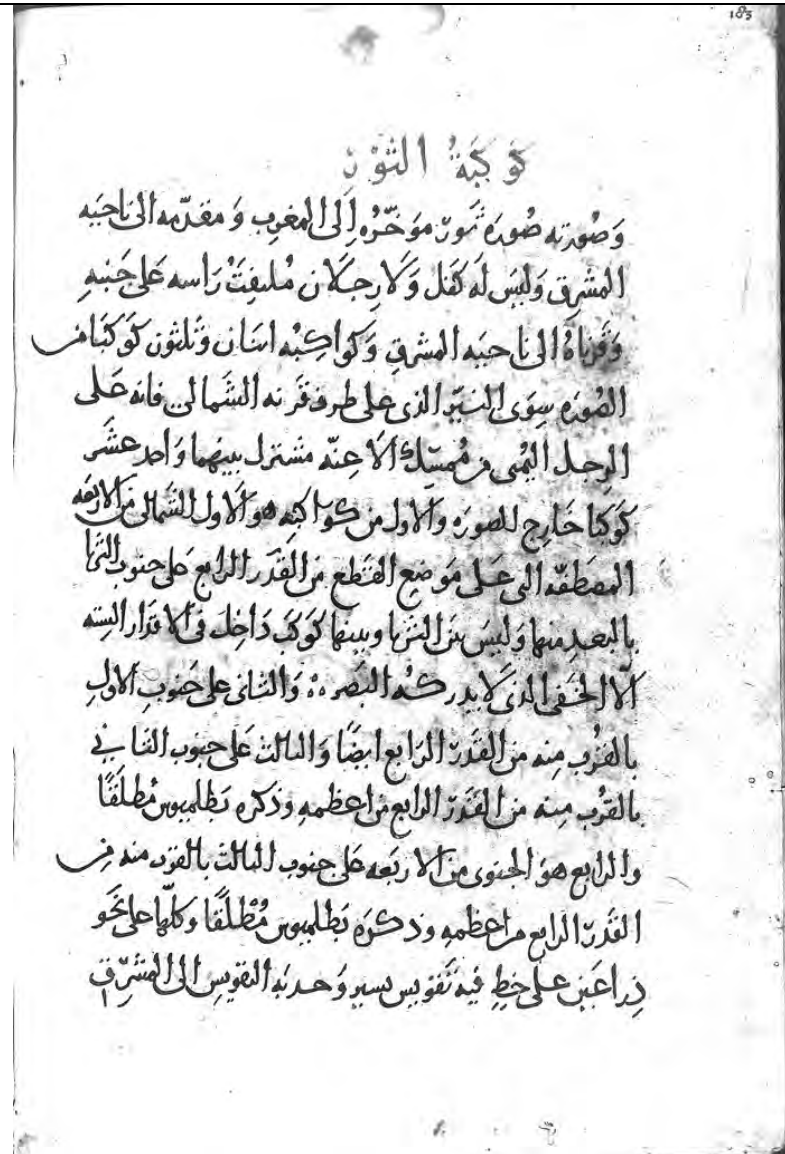 183
كوكبة الثور
وصورته صورة ثور مؤخره إلى المغرب ومقدمه الى ناحيه
المشرق وليس له كفل ولا رجلان ملتفت راسه على جنبه
وقرناه الى ناحيه المشرق وكواكبه اثنان وثلثون كوكبا من
الصوره سوى النير الذى على طرف قرنه الشمالى فانه على
الرجل اليمنى من ممسك الاعنّه مشترك بينهما واحد عشر
كوكبا خارج الصوره والاول من كواكبه هو الاول الشمالى من الاربعه
المصطفّه التى على موضع القطع من القدر الرابع على جنوب الثريا
بالبعد منها وليس بين الثريا وبينها كوكب داخل فى الاقدار السته
الّا الخفى الذى لا يدركه البصر ه والثانى على جنوب الاول
بالقرب منه من القدر الرابع ايضًا والثالث على جنوب الثانى
بالقرب منه من القدر الرابع من اعظمه وذكره بطلميوس مُطلقًا
والرابع هو الجنوبى من الاربعه على جنوب الثالث بالقرب منه من
القدر الرابع من اعظمه وذكره بطلميوس مُطلقًا وكلّها على نحو
ذراعين على خطٍ فيه تقويس يسير وحدبه التقويس الى المشرق